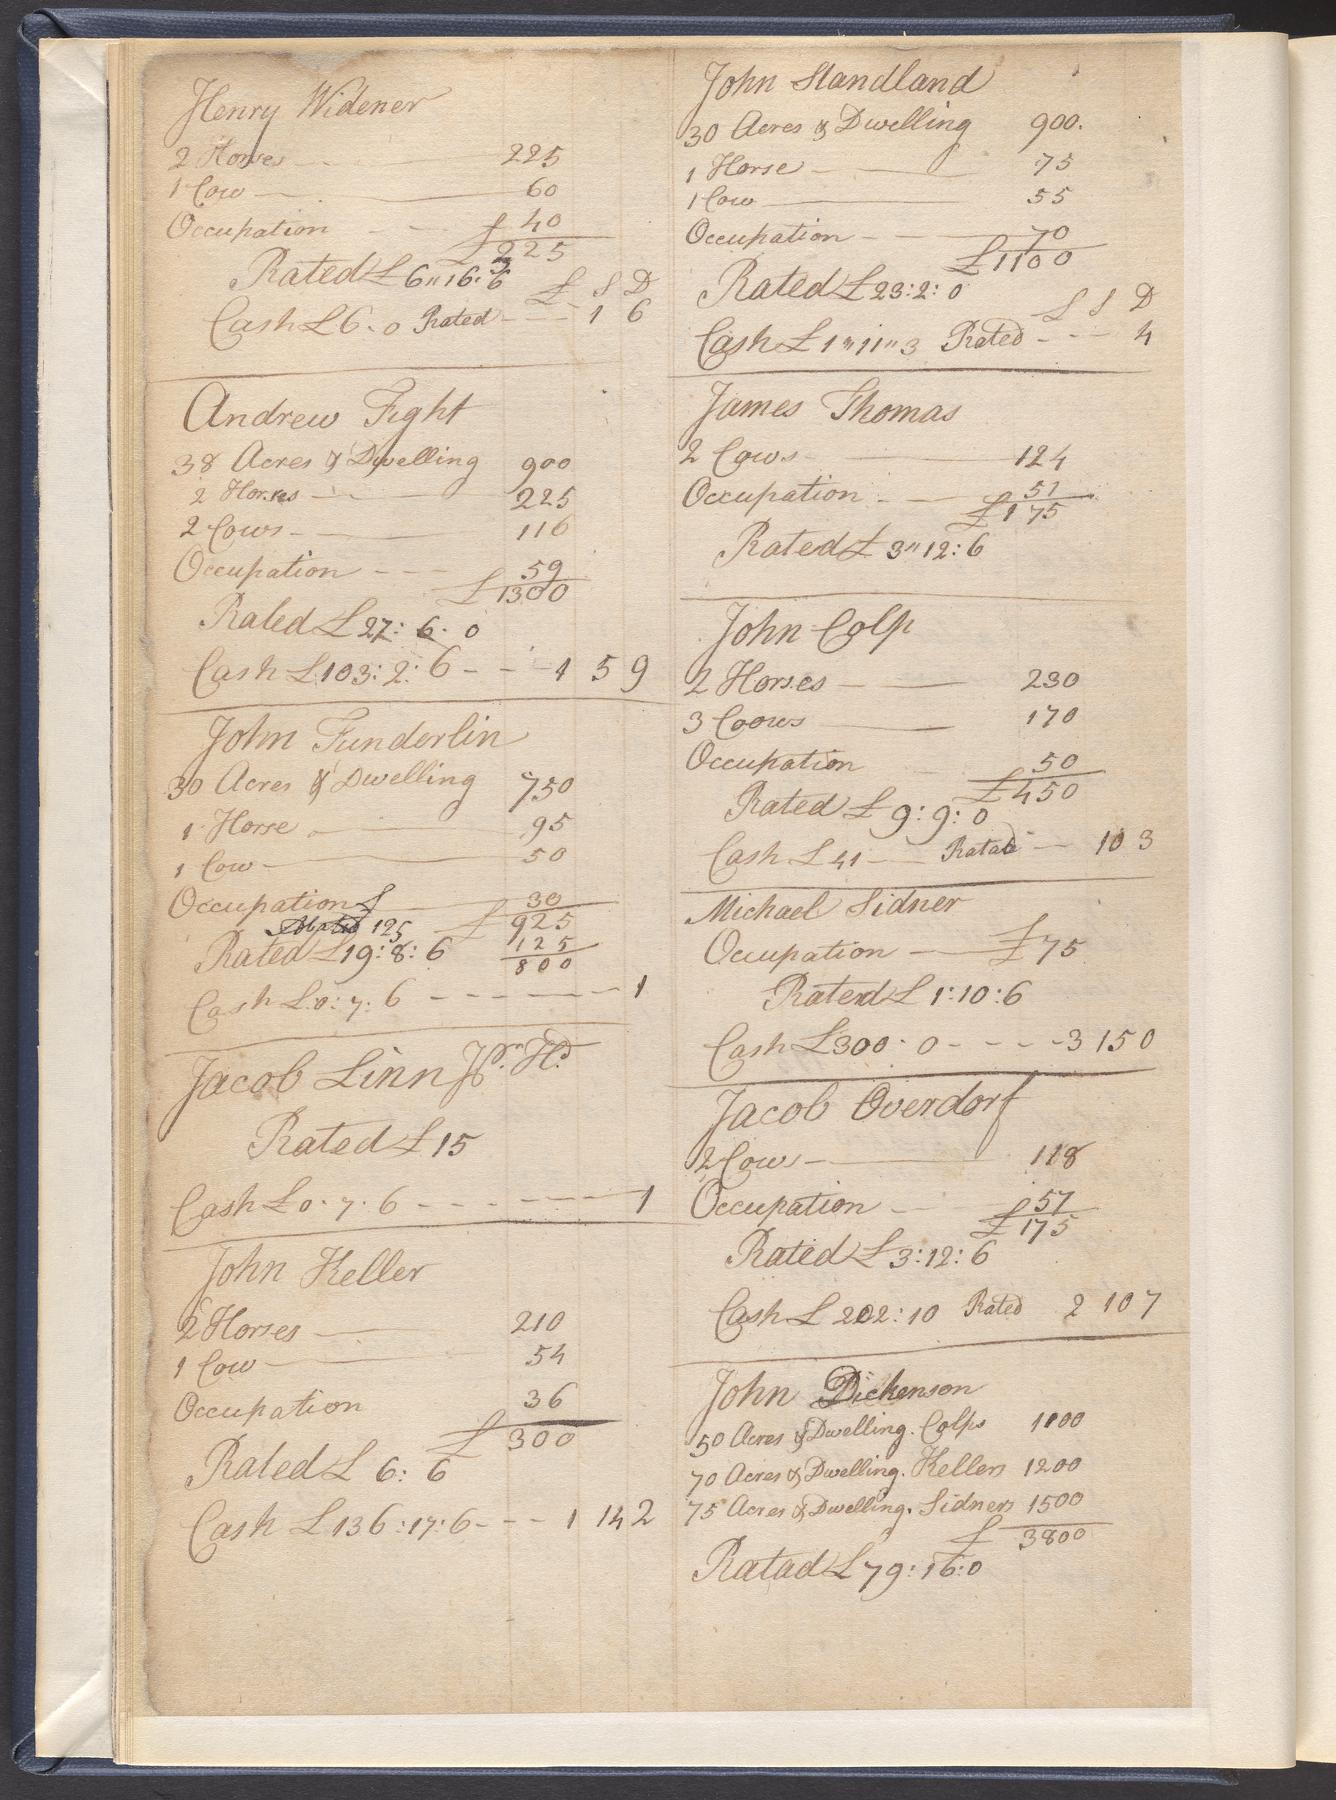 Henry Widener
2 Horses 225
1 Cow 60
Occupation 40
£ 325
Rated £ 6"16:6 £ S D
Cash £6.0 Rated 1 6
Andrew Fight
38 Acres & Dwelling 900
2 Horses 225
2 Cows 116
Occupation 59
£ 1300
Rated £ 27: 6. 0
Cash £103:2:6 1 5 9
John Funderlin
30 Acres & Dwelling 750
1 Horse 95
1 Cow 50
Occupation 30
Abated 125 £ 925
Rated £19:8:6 125
800
Cash £.0:7.6 1
Jacob Linn Jr. Hd
Rated £15
Cash £0.7.6 1
John Keller
2 Horses 210
1 Cow 54
Occupation 36
£ 300
Rated £ 6: 6
Cash £136:17:6 1 14 2
John Standland
30 Acres & Dwelling 900.
1 Horse 75
1 Cow 55
Occupation 70
£1100
Rated £23:2:0
£ S D
Cash £1"11"3 Rated 4
James Thomas
2 Cows 124
Occupation 51
£175
Rated £ 3"12:6
John Colp
2 Horses 230
3 Coows 170
Occupation 50
£450
Rated £ 9:9:0
Cash £41 Ratad 10 3
Michael Sidner
Occupation £75
Raterd £1:10:6
Cash £300.0 3 15 0
Jacob Overdorf
2 Cows 118
Occupation 57
£175
Rated £3:12:6
Cash £202:10 Rated 2 10 7
John Dickenson
50 Acres & Dwelling. Colps 1100
70 Acres & Dwelling. Kellers 1200
75 Acres & Dwelling. Sidners 1500
£ 3800
Ratad £79:16:0